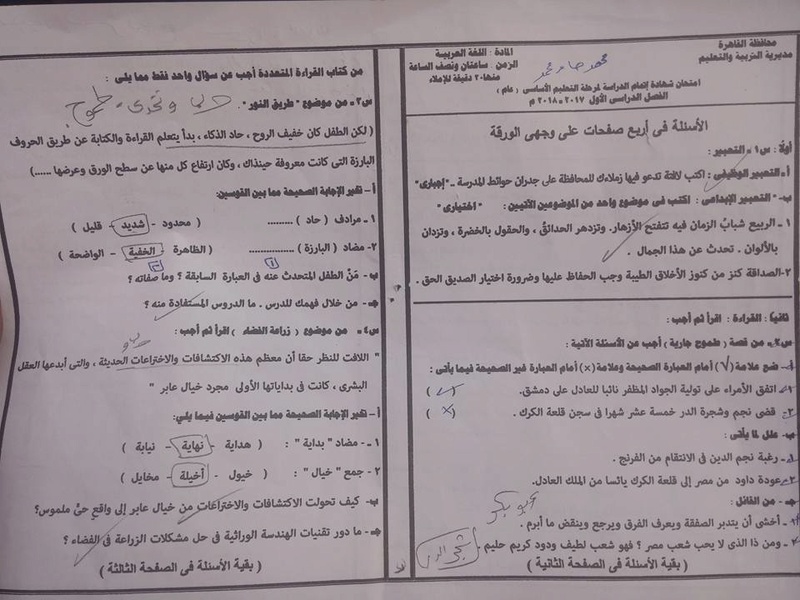 محافظة القاهرة
مديرية التربية والتعليم
المادة : اللغة العربية
الزمن : ساعتان ونصف الساعة
منها ٢٠ دقيقة للإملاء
امتحان شهادة إتمام الدراسة لمرحلة التعليم الأساسى ( عام )
الفصل الدراسى الأول ٢٠١٧ - ٢٠١٨ م
الأسئلة فى أربع صفحات على وجهى الورقة
أولًا : س١ - التعبير :
أ - التعبير الوظيفى : اكتب لافتة تدعو فيها زملاءك للمحافظة على جدران حوائط المدرسة - "إجبارى"
ب - التعبير الإبداعى : اكتب فى موضوع واحد من الموضوعين الآتيين : "اختيارى"
١ - الربيع شبابُ الزمان فيه تتفتح الأزهار، وتزدهر الحدائق، والحقول بالخضرة ، وتزدان
بالألوان . تحدث عن هذا الجمال .
٢- الصداقة كنز من كنوز الأخلاق الطيبة وجب الحفاظ عليها وضرورة اختيار الصديق الحق .
ثانيًا : القراءة : اقرأ ثم أجب :
س٢ - من قصة ( طموح جارية ) أجب عن الأسئلة الآتية :
أ - ضع علامة (√) أمام العبارة الصحيحة وعلامة (×) أمام العبارة غير الصحيحة فيما يأتى :
١ - اتفق الأمراء على تولية الجواد المظفر نائبا للعادل على دمشق. ( ✓ )
٢ - قضى نجم وشجرة الدر خمسة عشر شهرا فى سجن قلعة الكرك . ( × )
ب - علل لما يأتى :
١ - رغبة نجم الدين فى الانتقام من الفرنج .
٢ - عودة داود من مصر إلى قلعة الكرك يائسا من الملك العادل.
جـ - من القائل :
١ - أخشى أن يتدبر الصفقة ويعرف الفرق ويرجع وينقض ما أبرم .
٢ - ومن ذا الذى لا يحب شعب مصر ؟ فهو شعب لطيف ودود كريم حليم .
( بقية الأسئلة فى الصفحة الثانية )
من كتاب القراءة المتعددة أجب عن سؤال واحد فقط مما يلى :
س٣ - من موضوع " طريق النور " .
( لكن الطفل كان خفيف الروح ، حاد الذكاء ، بدأ يتعلم القراءة والكتابة عن طريق الحروف
البارزة التى كانت معروفة حينذاك ، وكان ارتفاع كل منها عن سطح الورق وعرضها ......)
أ - تخير الإجابة الصحيحة مما بين القوسين:
١ - مرادف ( حاد ) ......... ( محدود - شديد - قليل )
٢- مضاد ( البارزة ) ............... ( الظاهرة - الخفية - الواضحة )
ب - مَنْ الطفل المتحدث عنه فى العبارة السابقة ؟ وما صفاته ؟
جـ - من خلال فهمك للدرس . ما الدروس المستفادة منه ؟
س٤ - من موضوع ( زراعة الفضاء ) اقرأ ثم أجب :
" اللافت للنظر حقا أن معظم هذه الاكتشافات والاختراعات الحديثة ، والتى أبدعها العقل
البشرى ، كانت فى بداياتها الأولى مجرد خيال عابر "
أ - تخير الإجابة الصحيحة مما بين القوسين فيما يلي:
١ - مضاد " بداية " : ( هداية - نهاية - نيابة )
٢ - جمع " خيال " : ( خيول - أخيلة - مخايل )
ب - كيف تحولت الاكتشافات والاختراعات من خيال عابر إلى واقع حىّ ملموس؟
جـ - ما دور تقنيات الهندسة الوراثية فى حل مشكلات الزراعة فى الفضاء ؟
( بقية الأسئلة فى الصفحة الثالثة )